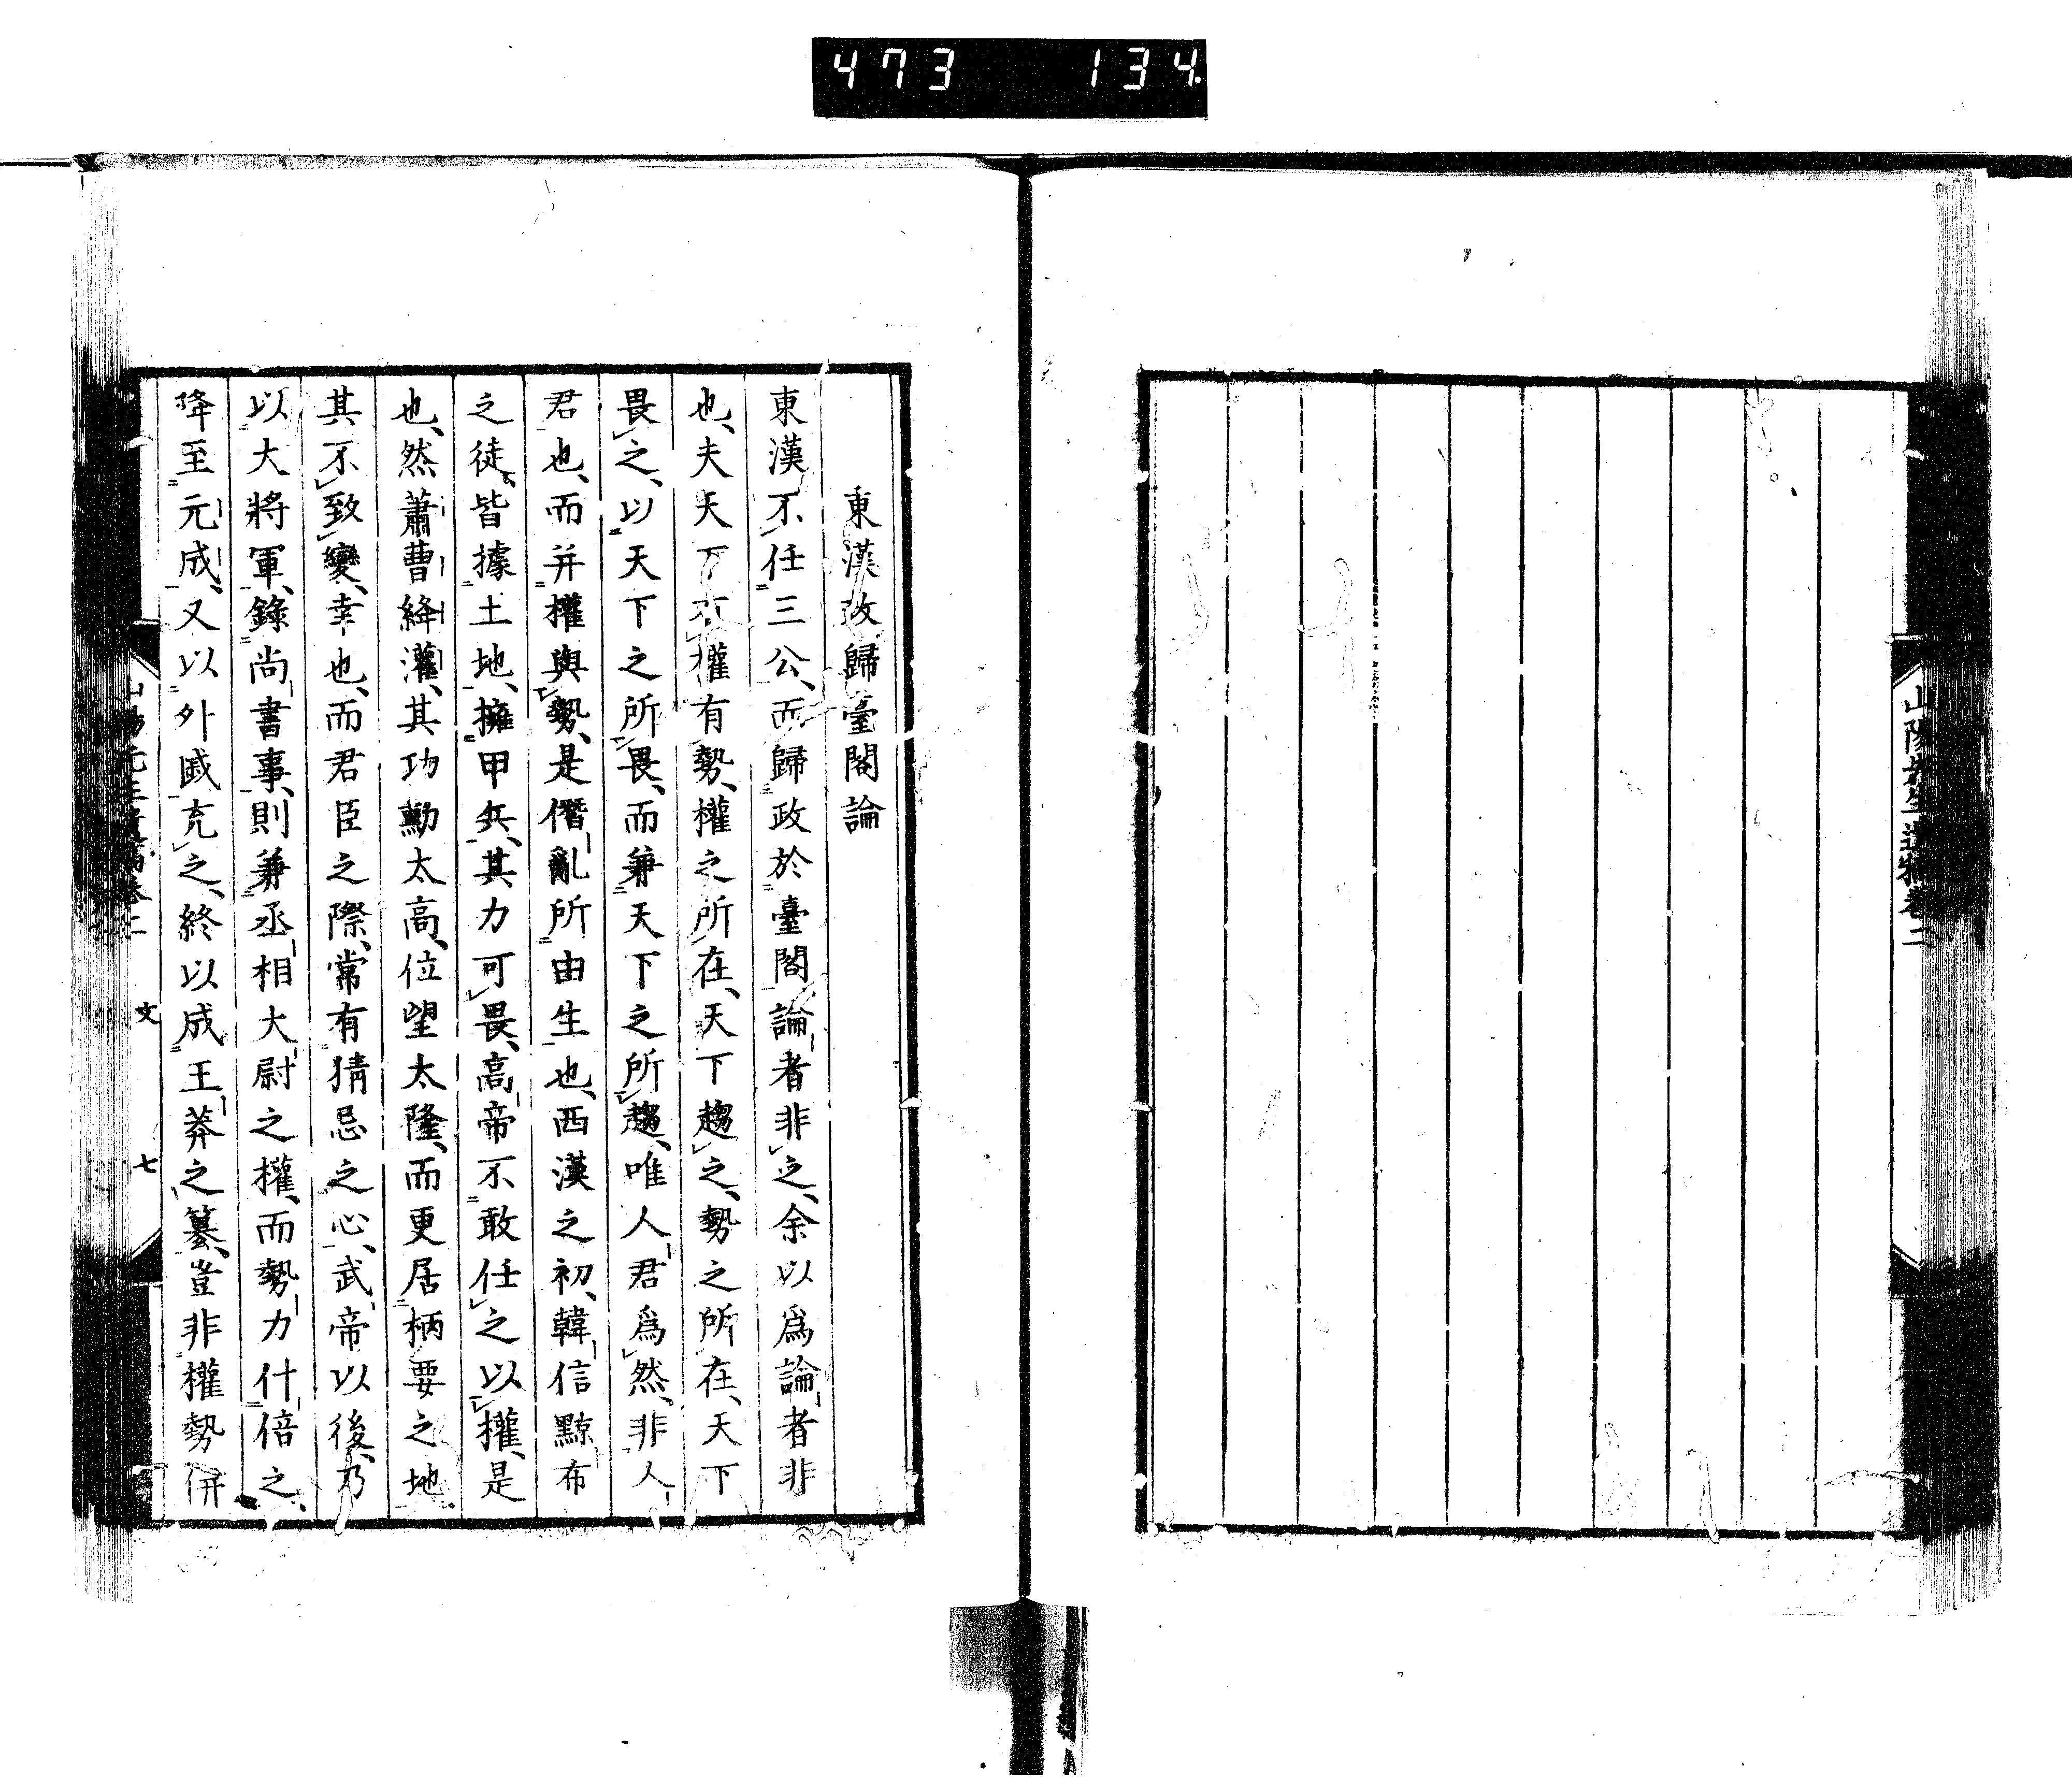 473 134
山陽先生遺稿卷二
東漢政歸臺閣論
東漢不任三公、而歸政於臺閣論者非之、余以爲論者非
也、夫天下有權有勢、權之所在、天下趨之、勢之所在、天下
畏之、以天下之所畏、而兼天下之所趨、唯人君爲然、非人
君也、而并權與勢、是僭亂所由生也、西漢之初、韓信黥布
之徒、皆據土地、擁甲兵、其力可畏、高帝不敢任之以權、是
也、然蕭曹絳灌、其功勳太高、位望太隆、而更居柄要之地、
其不致變、幸也、而君臣之際、常有猜忌之心、武帝以後、乃
以大將軍、錄尚書事、則兼丞相大尉之權、而勢力什倍之、
降至元成、又以外戚充之、終以成王莽之簒、豈非權勢併
山陽先生遺稿卷二 文 七